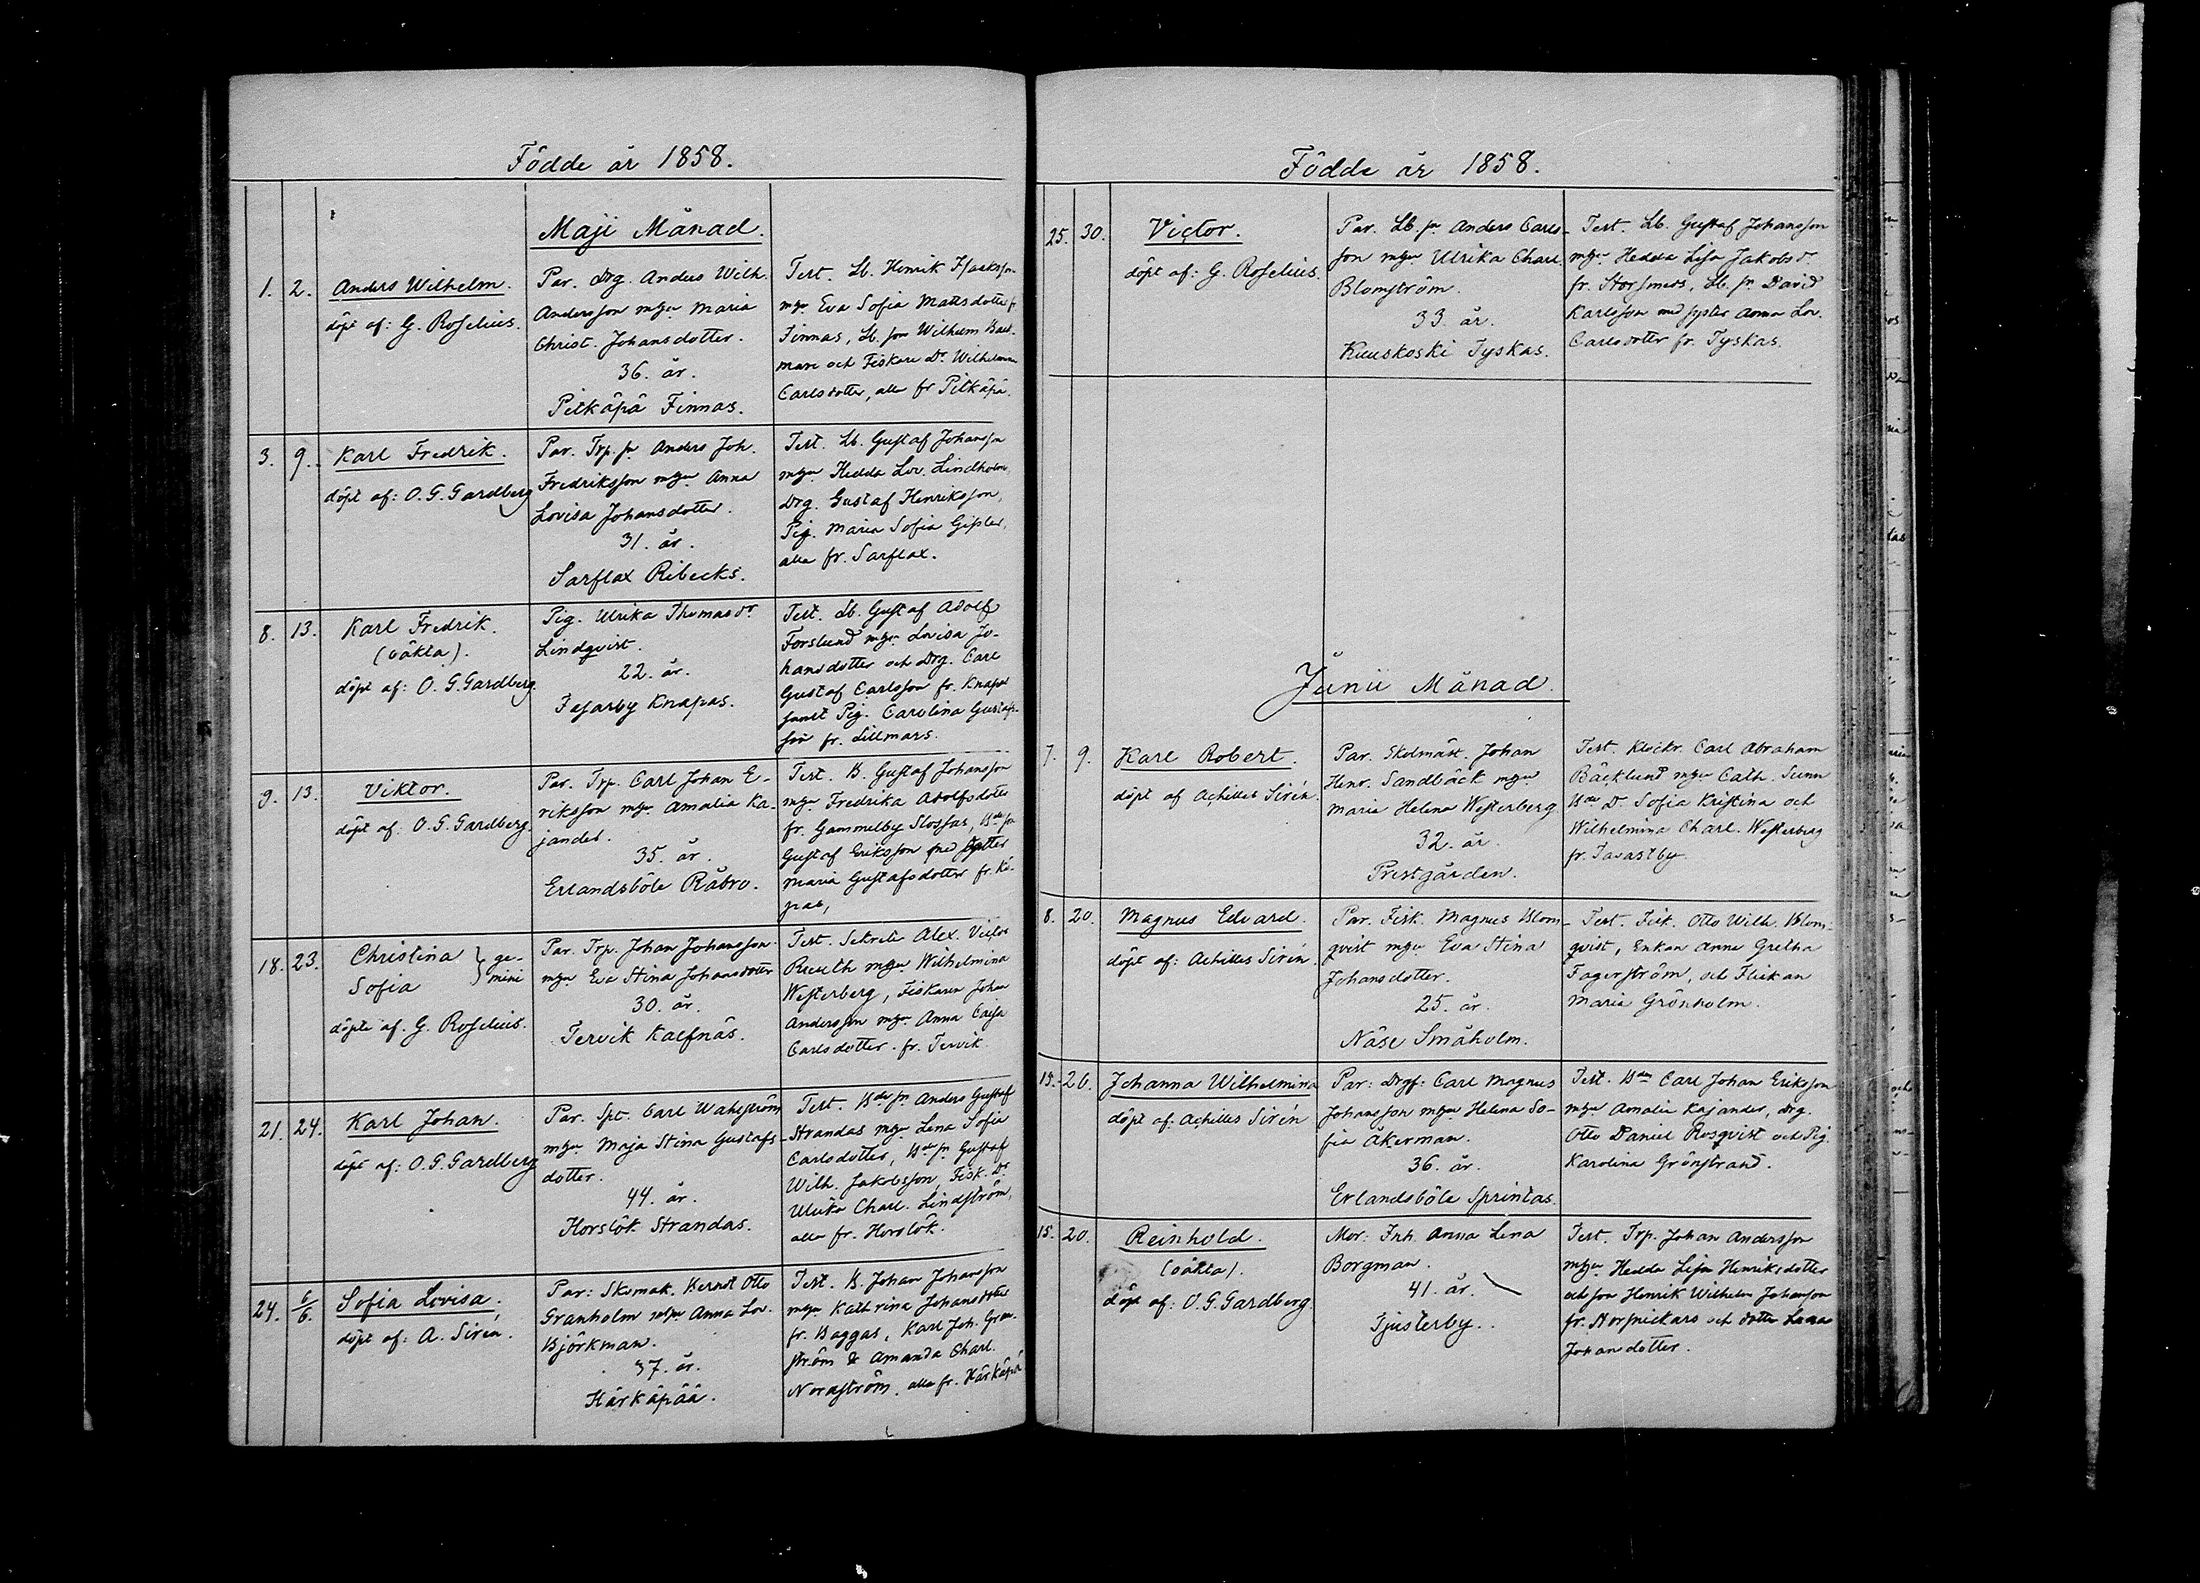 Födde år 1858.
Maji Månad.
1. 2. Anders Wilhelm.
döpt af: G. Roselius.
Par. Drg. Anders Wilh.
Andersson mhu Maria
Christ. Johansdotter.
36. år.
Pitkäpä Finnas.
Test. Lb. Henrik Isaksson
mhu Eva Sofia Mattsdotter fr
Finnas, Lb. son Wilhelm
och Fiskare Dr Wilhelmina
Carlsdotter, alla fr Pitkäpä.
3. 9. Karl Fredrik.
döpt af: O. G. Gardberg
Par. Trp. sn Anders Joh.
Fredriksson mhu Anna
Lovisa Johansdotter.
31. år.
Sarflax Ribecks.
Test. Lb. Gustaf Johansson
mhu Hedda Lov. Lindholm,
Drg. Gustaf Henriksson,
Pig. Maria Sofia Gisler,
alla fr. Sarflax.
8. 13. Karl Fredrik.
(oäkta).
döpt af: O. G. Gardberg.
Pig. Ulrika Thomasdr
Lindqvist.
22. år.
Isnäs Knapas.
Test. Lb. Gustaf Adolf
Forslund mhu Lovisa Jo-
hansdotter och Drg. Carl
Gustaf Carlsson fr. Knapas
samt Pig. Carolina Gustafs-
fr. Lillmars.
9. 13. Viktor.
döpt af: O. G. Gardberg.
Par. Trp. Carl Johan E-
riksson mhu Amalia Ka-
jander.
35. år.
Erlandsböle Råbro.
Test. B. Gustaf Johansson
mhu Fredrika Adolfsdotter
fr. Gammelby Slossas, Bde sn
Gustaf Eriksson med
Maria Gustafsdotter fr. Ki-
pas,
18. 23. Christina } ge-
Sofia } mini
döpte af. G. Roselius.
Par. Trp. Johan Johansson
mhu Eva Stina Johansdotter
30. år.
Tervik Kalfnäs.
Test. Sekret. Alex. Victor
Reuth mhu Wilhelmina
Westerberg, Fiskaren Johan
Andersson mhu Anna Caisa
Carlsdotter. fr. Tervik
21. 24. Karl Johan.
döpt af: O. G. Gardberg
Par. Spt. Carl Wahlström
mhu Maja Stina Gustafs-
dotter.
44. år.
Horslök Strandas.
Test. Bde sn Anders Gustaf
Strandas mhu Lena Sofia
Carlsdotter, Bde sn Gustaf
Wilh. Jakobsson, Fisk. Dr
Ulrika Charl. Lindström,
alla fr. Horslök.
24. 6/6. Sofia Lovisa.
döpt af: A. Sirén.
Par: Skomak. Berndt Otto
Granholm mhu Anna Lov.
Björkman.
37. år.
Härkäpää.
Test. B. Johan Johansson
mhu Kathrina Johansdotter
fr. Baggas, Karl Joh. Gran-
ström & Amanda Charl.
Nordström, alla fr. Härkäpä
Födde år 1858.
25. 30. Victor.
döpt af: G. Roselius
Par. Lb. sn Anders Carls-
son mhu Ulrika Charl.
Blomström.
33. år.
Kuuskoski Tyskas.
Test. Lb. Gustaf Johansson
mhu Hedda Lisa Jakobsdr
fr. Storsmeds, Lb. sn David
Karlsson med syster Anna Lov.
Carlsdotter fr. Tyskas.
Junii Månad.
7. 9. Karl Robert.
döpt af Achilles Sirén.
Par. Skolmäst. Johan
Henr. Sandbäck mhu
Maria Helena Westerberg
32. år.
Prestgården.
Test. Klockr. Carl Abraham
Bäcklund mhu Cath. Sunn
Bde Dr Sofia Kristina och
Wilhelmina Charl. Westerberg
fr. Tavastby
8. 20. Magnus Edvard.
döpt af: Achilles Sirén.
Par. Fisk. Magnus Blom-
qvist mhu Eva Stina
Johansdotter.
25. år.
Näse Småholm.
Test. Fisk. Otto Wilh. Blom-
qvist, Enkan Anna Gretha
Fagerström, och Flickan
Maria Grönholm.
15. 26. Johanna Wilhelmina
döpt af: Achilles Sirén
Par: Drgs: Carl Magnus
Johansson mhu Helena So-
fia Åkerman.
36. år.
Erlandsböle Sprintas.
Test. Bden Carl Johan Eriksson
mhu Amalia Kajander, Drg.
Otto Daniel Rosqvist och Pig.
Karolina Grönstrand.
15. 20. Reinhold.
(oäkta).
döpt af: O. G. Gardberg.
Mor: Inh. Anna Lena
Borgman.
41. år.
Tjusterby.
Test. Trp. Johan Andersson
mhu Hedda Lisa Henriksdotter
och son Henrik Wilhelm Johansson
fr. Norsnickars och dotter
Johansdotter.